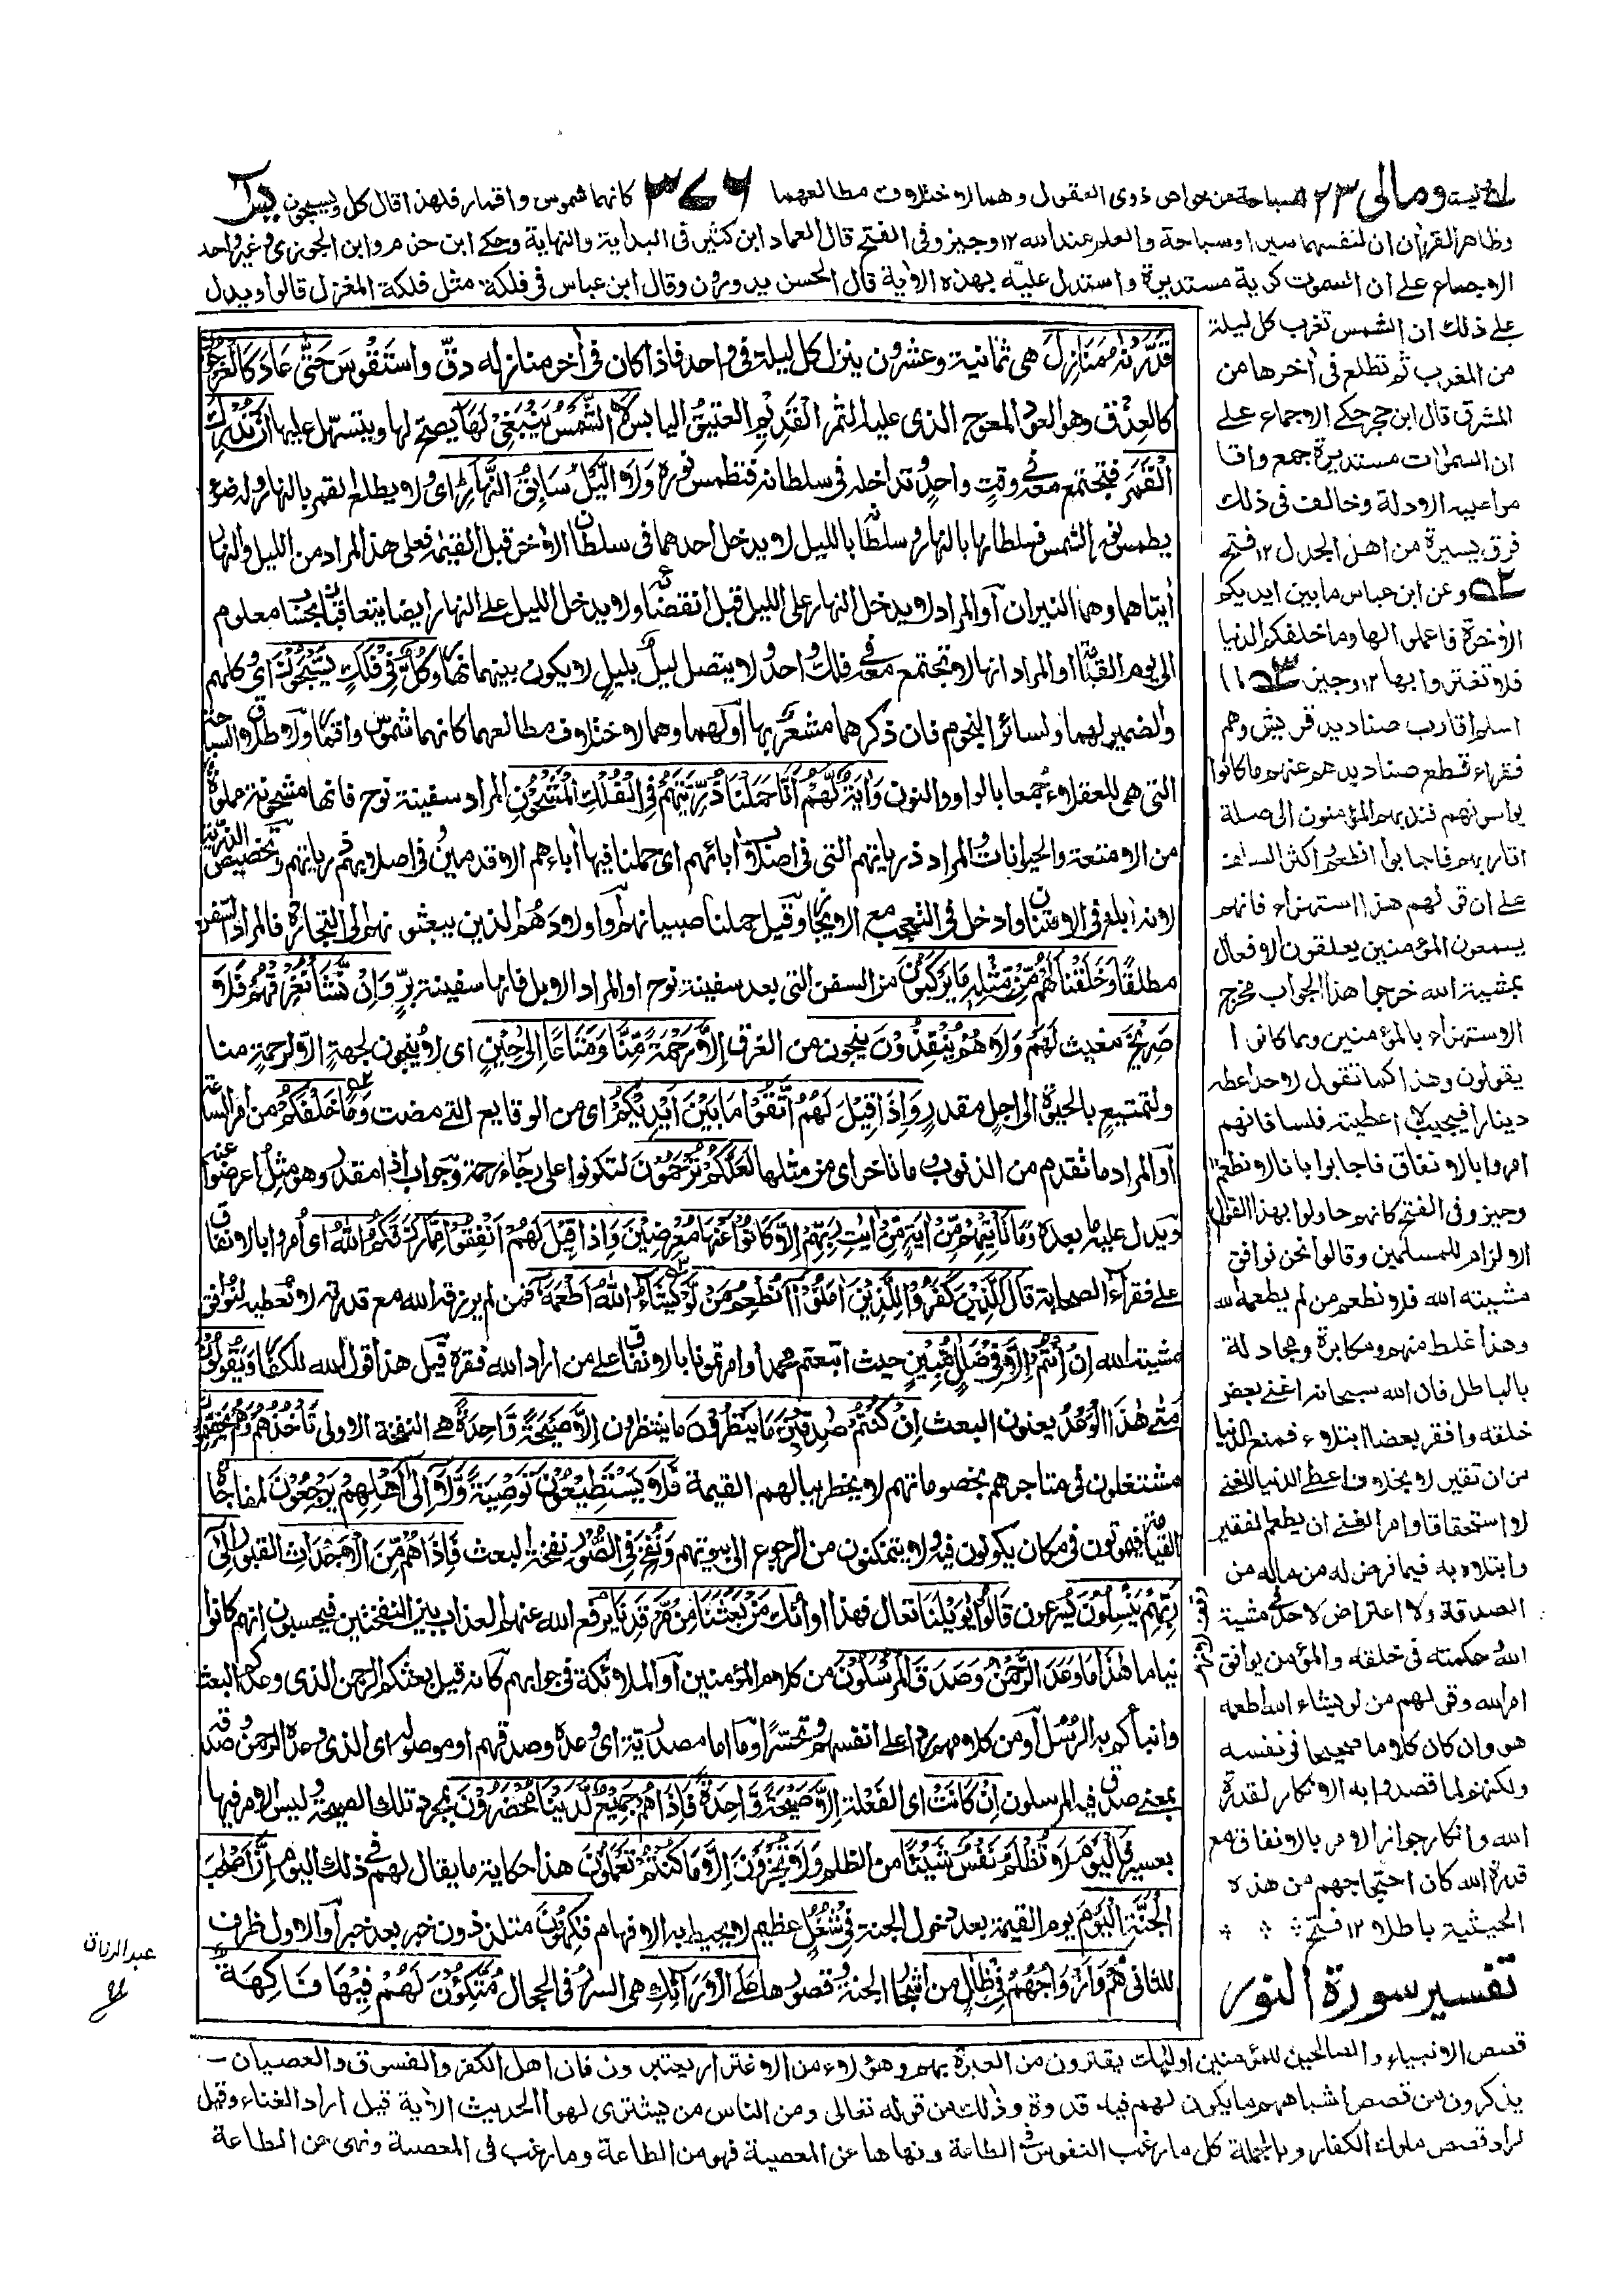 ومالي ٢٣
٣٧٦
يس
السباحة من خواص ذوى العقول وهما لاختلاف مطالعهما كانهما شموس واقمار فلهذا قال كل ويسبحون
وظاهر القرآن ان لنفسهما سيرا وسباحة والعلم عند الله ١٢ وجيز وفى الفتح قال العماد ابن كثير فى البداية والنهاية وحكى ابن حزم وابن الجوزى وغير واحد
الاجماع على ان السموت كرية مستديرة واستدل عليه بهذه الآية قال الحسن يدورون وقال ابن عباس فى فلكة مثل فلكة المغزل قالوا ويدل
على ذلك ان الشمس تغرب كل ليلة
من المغرب ثم تطلع فى آخرها من
المشرق قال ابن حجر حكى الاجماع على
ان السموات مستديرة جمع واقا
مواعليه الادلة وخالف فى ذلك
فرق يسيرة من اهل الجدل ١٢ فتح
٥٢ وعن ابن عباس ما بين ايديكم
الآخرة فاعملوا لها وما خلفكم الدنيا
فلا تغتروا بها ١٢ وجيز
اسلم اقارب صناديد قريش وهم
فقراء فقطع صناديدهم عنهم ما كانوا
يواسونهم فندبهم المؤمنون الى صلة
اقاربهم فاجابوا انطعم اكثر السلف
على ان قولهم هذا استهزاء فانهم
يسمعون المؤمنين يعلقون الافعال
بمشيئة الله خرجوا هذا الجواب مخرج
الاستهزاء بالمؤمنين وبما كانوا
يقولون وهذا كما تقول لاحد اعطه
دينارا فيجيب لا اعطيته فلسا فانهم
امروا بالانفاق فاجابوا بانا لا نطعم ١٢
وجيز وفى الفتح كانهم حاولوا بهذا القول
الالزام للمسلمين وقالوا نحن نوافق
مشيئة الله فلا نطعم من لم يطعمه الله
وهذا غلط منهم ومكابرة ومجادلة
بالباطل فان الله سبحانه اغنى بعض
خلقه وافقر بعضا ابتلاء فمنع الدنيا
من الفقير لا بخلا واعطى الدنيا الغنى
لا استحقاقا وامر الغنى ان يطعم الفقير
وابتلاه به فيما فرض له من ماله من
الصدقة ولا اعتراض لاحد فى مشية
الله وحكمته فى خلقه والمؤمن يوافق
امر الله وقولهم من لو يشاء الله اطعمه
هو وان كان كلاما صحيحا فى نفسه
ولكنهم لما قصدوا به الانكار لقدرة
الله وانكار جواز الامر بالانفاق مع
قدرة الله كان احتجاجهم من هذه
الحيثية باطلا ١٢ فتح
تفسير سورة النور
قَدَّرْنٰهُ مَنَازِلَ هى ثمانية وعشرون ينزل كل ليلة فى واحد فاذا كان فى آخر منازله دقّ واستقوس حَتّٰى عَادَ كَالْعُرْجُوْنِ
كالعذق وهو العود المعوج الذى عليه الثمر الْقَدِيْمِ العتيق اليابس لَا الشَّمْسُ يَنْبَغِيْ لَهَا يصح لها ويتسهل عليها اَنْ تُدْرِكَ
الْقَمَرَ فتجتمع معه فى وقت واحد وتداخله فى سلطانه فتطمس نوره وَلَا الَّيْلُ سَابِقُ النَّهَارِ اى ولا يطلع القمر بالنهار وله ضوء
يطمس نور الشمس فسلطانها بالنهار وسلطانه بالليل لا يدخل احدهما فى سلطان الآخر قبل القيمة فعلى هذا المراد من الليل والنهار
آيتاهما وهما النيران او المراد لا يدخل النهار على الليل قبل انقضائه ولا يدخل الليل على النهار ايضا يتعاقبان بحساب معلوم
الى يوم القيمة او المراد انها لا تجتمع معه فى فلك واحد ولا يتصل ليل بليل لا يكون بينهما نهار وَكُلٌّ فِيْ فَلَكٍ يَّسْبَحُوْنَ اى وكلهم
والضمير لهما ولسائر النجوم فان ذكرهما مشعر بها او لهما وهما لاختلاف مطالعهما كانهما شموس واقمار ولاطلاق السباحة
التى هى للعقلاء جُمعا بالواو والنون وَاٰيَةٌ لَّهُمْ اَنَّا حَمَلْنَا ذُرِّيَّتَهُمْ فِى الْفُلْكِ الْمَشْحُوْنِ المراد سفينة نوح فانها مشحونة مملوة
من الامتعة والحيوانات والمراد ذرياتهم التى فى اصلاب آبائهم اى حملنا فيها آباءهم الاقدمين وفى اصلابهم ذرياتهم وتخصيص الذرية
لانه ابلغ فى الامتنان وادخل فى التعجب مع الايجاز وقيل حملنا صبيانهم واولادهم الذين يبعثونهم الى التجارة فالمراد السفن
مطلقًا وَخَلَقْنَا لَهُمْ مِّنْ مِّثْلِهٖ مَا يَرْكَبُوْنَ من السفن التى بعد سفينة نوح او المراد الابل فانها سفينة برّ وَاِنْ نَّشَأْ نُغْرِقْهُمْ فَلَا
صَرِيْخَ مغيث لَهُمْ وَلَا هُمْ يُنْقَذُوْنَ ينجون من الغرق اِلَّا رَحْمَةً مِّنَّا وَمَتَاعًا اِلٰى حِيْنٍ اى لا يُنجون لجهة الا لرحمة منا
ولتمتيع بالحيوة الى اجل مقدر وَاِذَا قِيْلَ لَهُمُ اتَّقُوْا مَا بَيْنَ اَيْدِيْكُمْ اى من الوقايع التى مضت وَمَا خَلْفَكُمْ من امر الساعة
او المراد ما تقدم من الذنوب وما تاخر اى من مثلها لَعَلَّكُمْ تُرْحَمُوْنَ لتكونوا على رجاء رحمة وجواب اذا مقدر وهو مثل اعرضوا عنه
ويدل عليه ما بعده وَمَا تَاْتِيْهِمْ مِّنْ اٰيَةٍ مِّنْ اٰيٰتِ رَبِّهِمْ اِلَّا كَانُوْا عَنْهَا مُعْرِضِيْنَ وَاِذَا قِيْلَ لَهُمْ اَنْفِقُوْا مِمَّا رَزَقَكُمُ اللّٰهُ اى اُمروا بالانفاق
على فقراء الصحابة قَالَ الَّذِيْنَ كَفَرُوْا لِلَّذِيْنَ اٰمَنُوْا اَنُطْعِمُ مَنْ لَّوْ يَشَاءُ اللّٰهُ اَطْعَمَهٗ فمن لم يرزقه الله مع قدرته لا نُعطيه لنوافق
مشية الله اِنْ اَنْتُمْ اِلَّا فِيْ ضَلٰلٍ مُّبِيْنٍ حيث اتبعتم محمدا وامرتمونا بالانفاق على من اراد الله فقره قيل هذا قول الله للكفار وَيَقُوْلُوْنَ
مَتٰى هٰذَا الْوَعْدُ يعنون البعث اِنْ كُنْتُمْ صٰدِقِيْنَ مَا يَنْظُرُوْنَ ما ينتظرون اِلَّا صَيْحَةً وَّاحِدَةً هى النفخة الاولى تَاْخُذُهُمْ وَهُمْ يَخِصِّمُوْنَ
مشتغلون فى متاجرهم بخصوماتهم لا يخطر ببالهم القيمة فَلَا يَسْتَطِيْعُوْنَ تَوْصِيَةً وَّلَا اِلٰى اَهْلِهِمْ يَرْجِعُوْنَ لمفاجاة
القيامة فيموتون فى مكان يكونون فيه ولا يتمكنون من الرجوع الى بيوتهم وَنُفِخَ فِى الصُّوْرِ نفخة البعث فَاِذَا هُمْ مِّنَ الْاَجْدَاثِ القبور اِلٰى
رَبِّهِمْ يَنْسِلُوْنَ يسرعون قَالُوْا يٰوَيْلَنَا تعال فهذا اوانك مَنْ بَعَثَنَا مِنْ مَّرْقَدِنَا يرفع الله عنهم العذاب بين النفختين فيحسبون انهم كانوا
نياما هٰذَا مَا وَعَدَ الرَّحْمٰنُ وَصَدَقَ الْمُرْسَلُوْنَ من كلام المؤمنين او الملائكة فى جوابهم كانه قيل بعثكم الرحمن الذى وعدكم البعث
وانبأكم به الرسل او من كلامهم ردا على انفسهم وتحسّرا وما اما مصدرية اى وعده وصدقهم او موصولة اى الذى وعده الرحمن وصدقه
بمعنى صدق فيه المرسلون اِنْ كَانَتْ اى الفعلة اِلَّا صَيْحَةً وَّاحِدَةً فَاِذَا هُمْ جَمِيْعٌ لَّدَيْنَا مُحْضَرُوْنَ بمجرد تلك الصيحة وليس الامر فيها
بعسير فَالْيَوْمَ لَا تُظْلَمُ نَفْسٌ شَيْئًا من الظلم وَلَا تُجْزَوْنَ اِلَّا مَا كُنْتُمْ تَعْمَلُوْنَ هذا حكاية ما يقال لهم فى ذلك اليوم اِنَّ اَصْحٰبَ
الْجَنَّةِ الْيَوْمَ يوم القيمة بعد دخول الجنة فِيْ شُغُلٍ عظيم لا يحيط به الافهام فٰكِهُوْنَ متلذذون خبر بعد خبر او الاول ظرف
للثانى هُمْ وَاَزْوَاجُهُمْ فِيْ ظِلٰلٍ من اشجار الجنة وقصورها عَلَى الْاَرَائِكِ هى السرر فى الحجال مُتَّكِئُوْنَ لَهُمْ فِيْهَا فَاكِهَةٌ
عبد الرزاق
قصص الانبياء والصالحين للمؤمنين اوليات يقترون من العبرة بهم وهؤلاء من الاغترار يعتبرون فان اهل الكفر والفسوق والعصيان
يذكرون من قصص اشباههم ما يكون لهم فيه قدوة وذلك من قوله تعالى ومن الناس من يشترى لهو الحديث الآية قيل اراد الغناء وقيل
اراد قصص ملوك الكفار وبالجملة كل ما رغب النفوس فى الطاعة ونهاها عن المعصية فهو من الطاعة وما رغب فى المعصية ونهى عن الطاعة